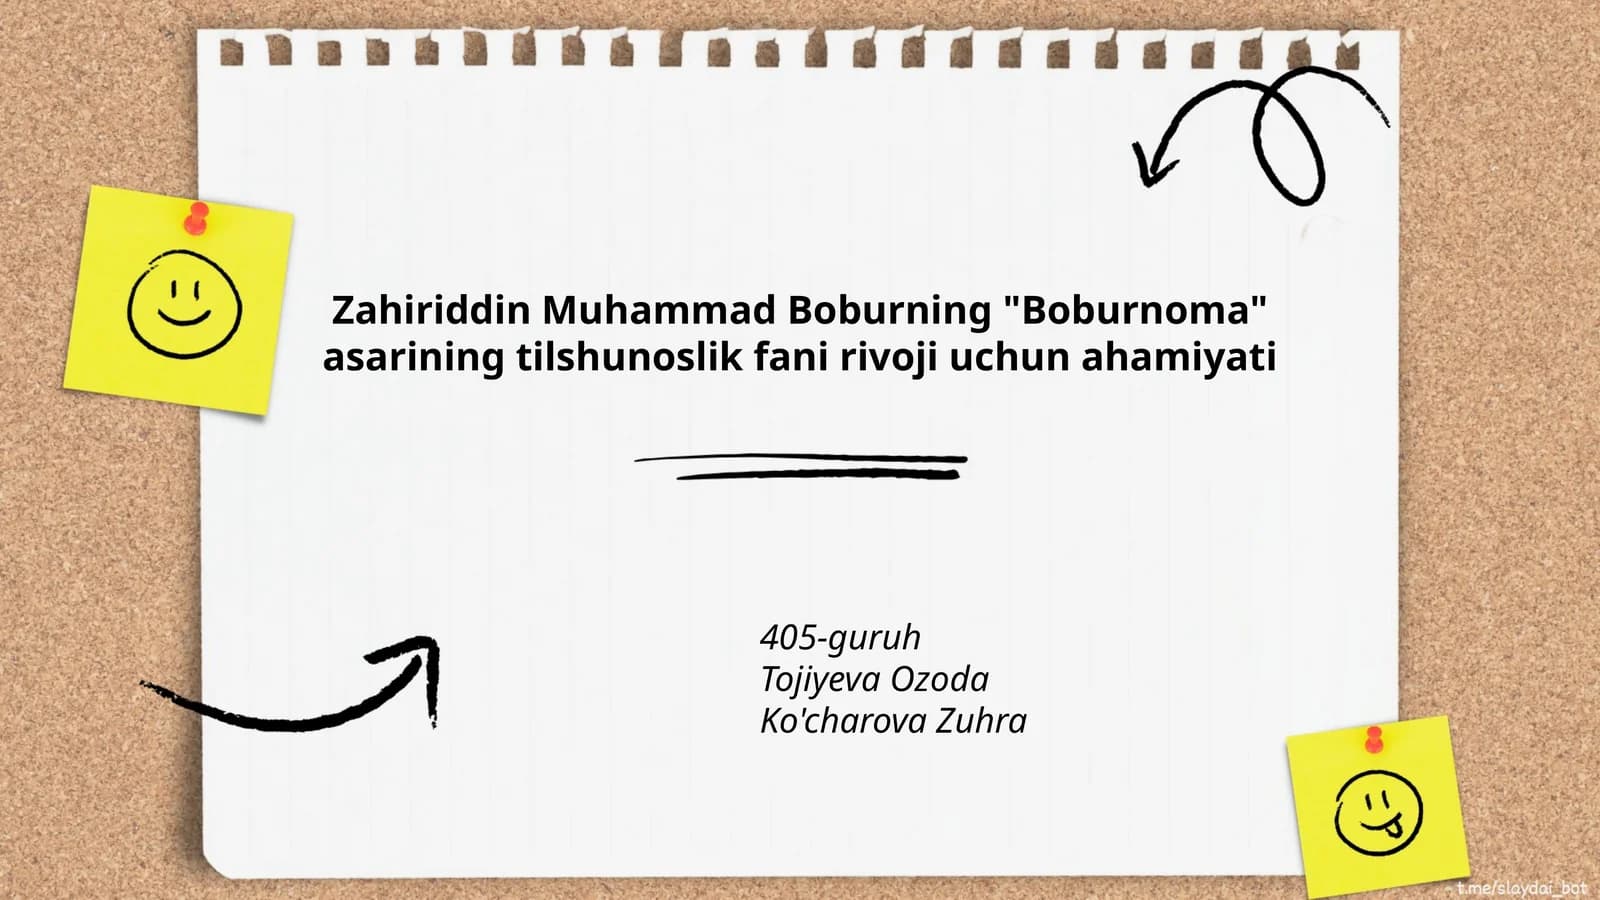 Zahiriddin Muhammad Boburning "Boburnoma"
asarining tilshunoslik fani rivoji uchun ahamiyati
405-guruh
Tojiyeva Ozoda
Ko'charova Zuhra
t.me/slaydai_bot